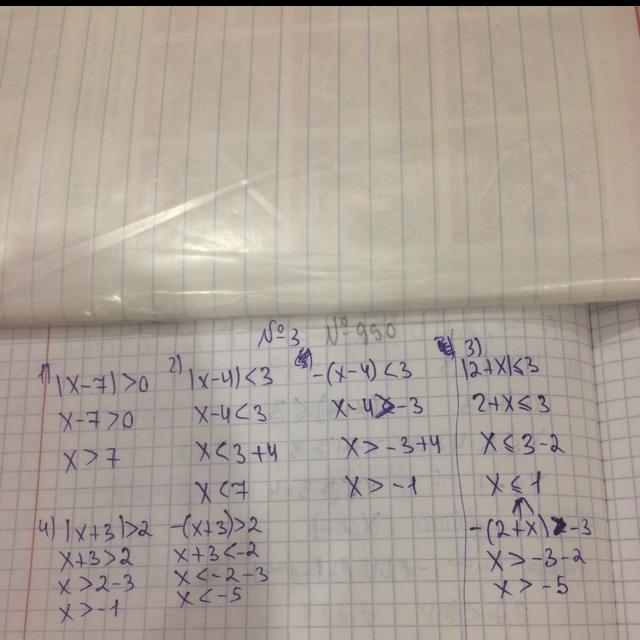 №3 №950
1) |x-7|>0
x-7>0
x>7
2) |x-4|<3
x-4<3
x<3+4
x<7
-(x-4)<3
x-4>-3
x>-3+4
x>-1
3)
|2+x|≤3
2+x≤3
x≤3-2
x≤1
-(2+x)>-3
x>-3-2
x>-5
4) |x+3|>2
x+3>2
x>2-3
x>-1
-(x+3)>2
x+3<-2
x<-2-3
x<-5